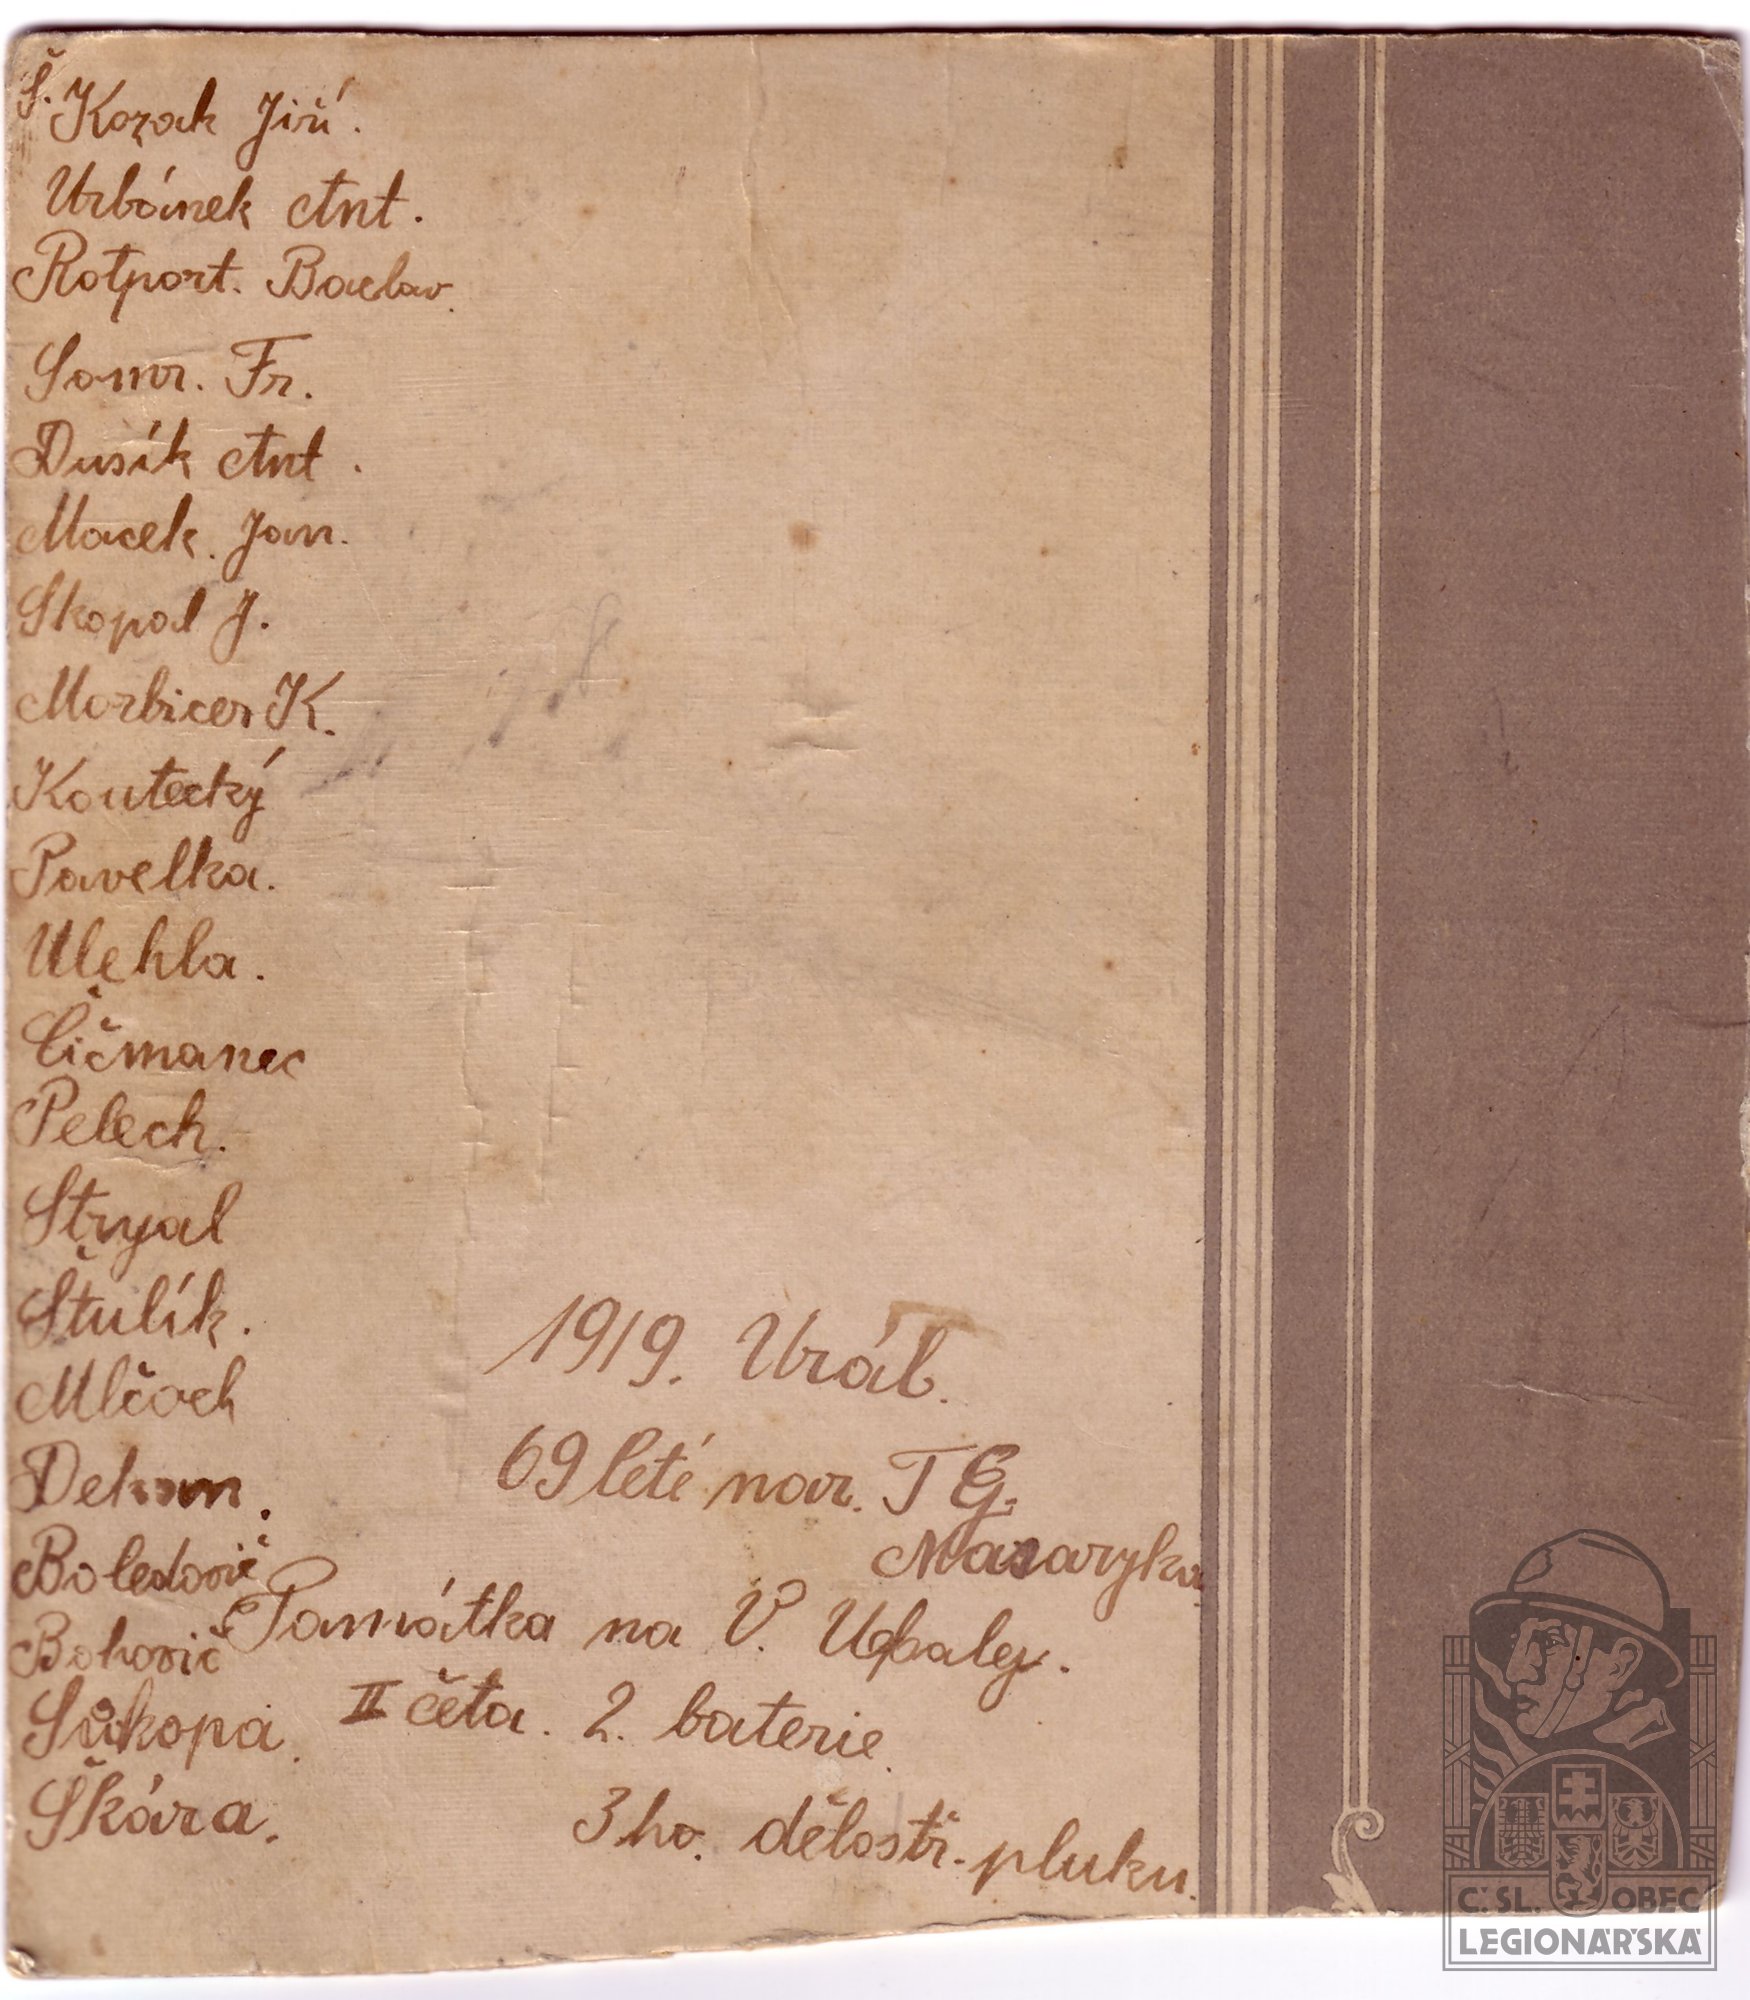 Š. Kozak Jiří.
Urbánek Ant.
Rotport. Vaclav.
Somr. Fr.
Dusík Ant.
Macek. Jan.
Skopal J.
Morbicer K.
Koutecký
Pavelka.
Ulehla.
Čičmanec
Pelech.
Stryal
Štulík.
Mlčoch
Dekan.
Boledovič
Bohovič
Sukopa.
Škára.
1919. Urál.
69 leté nar. T G.
Masaryka
Památka na V. Upaley.
II četa. 2. baterie.
3ho. dělostř. pluku.
Č.SL. OBEC
LEGIONÁŘSKÁ